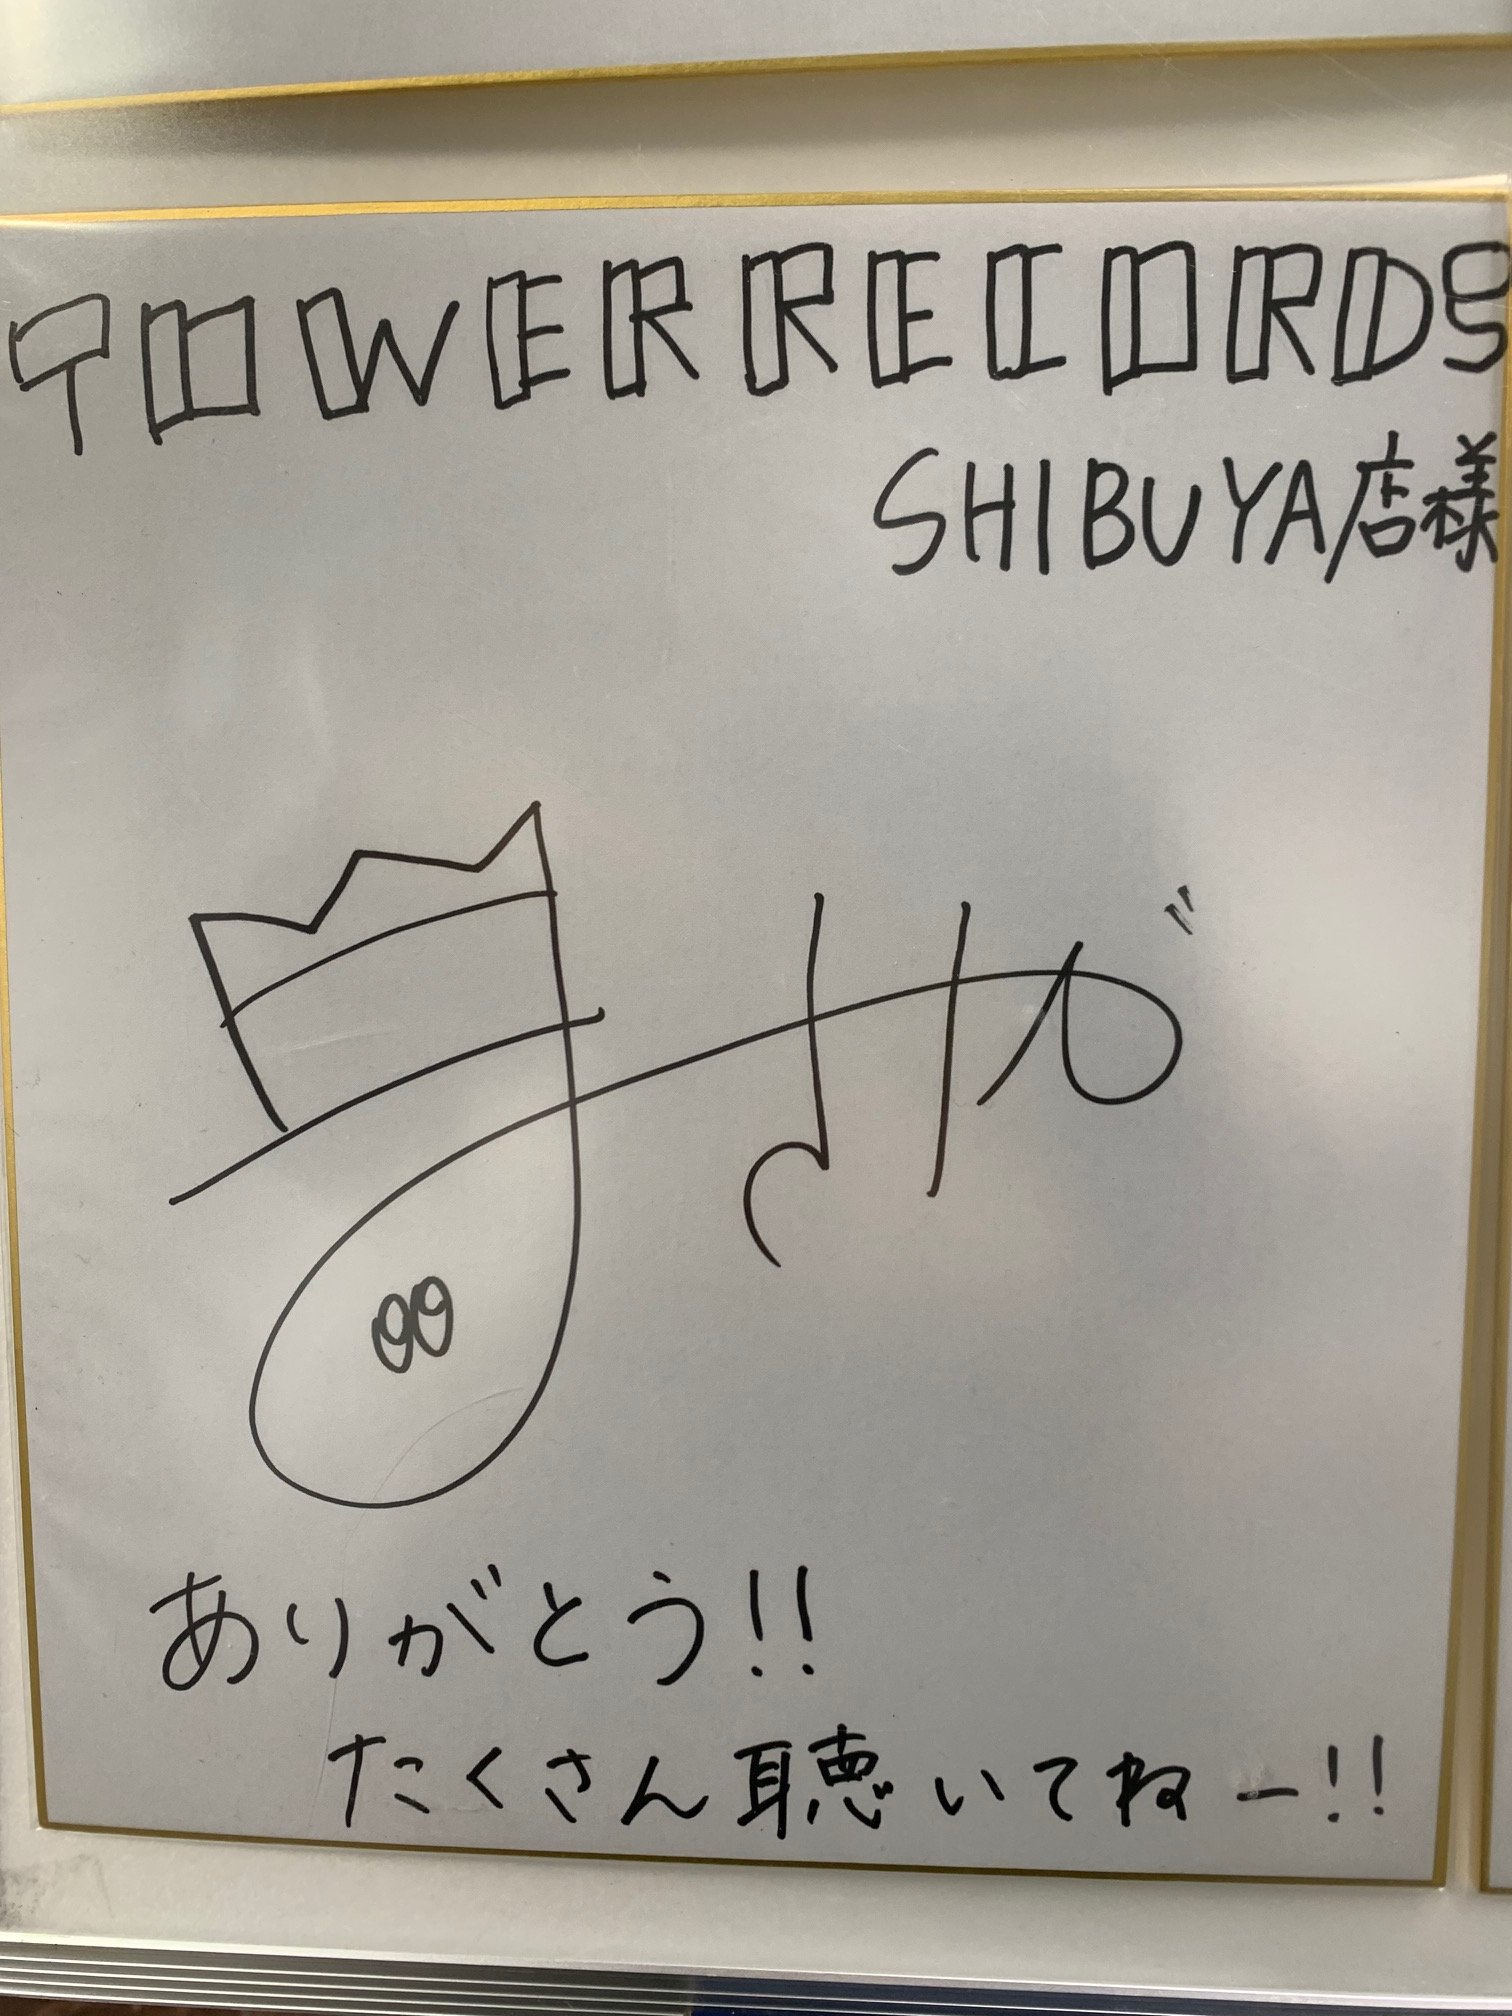 TOWER RECORDS
SHIBUYA店様
ありがとう!!
たくさん聴いてねー!!